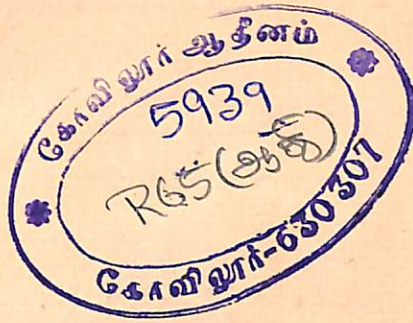 கோவிலூர் ஆதீனம்
5939
R65(ஆகி)
கோவிலூர்-630 307